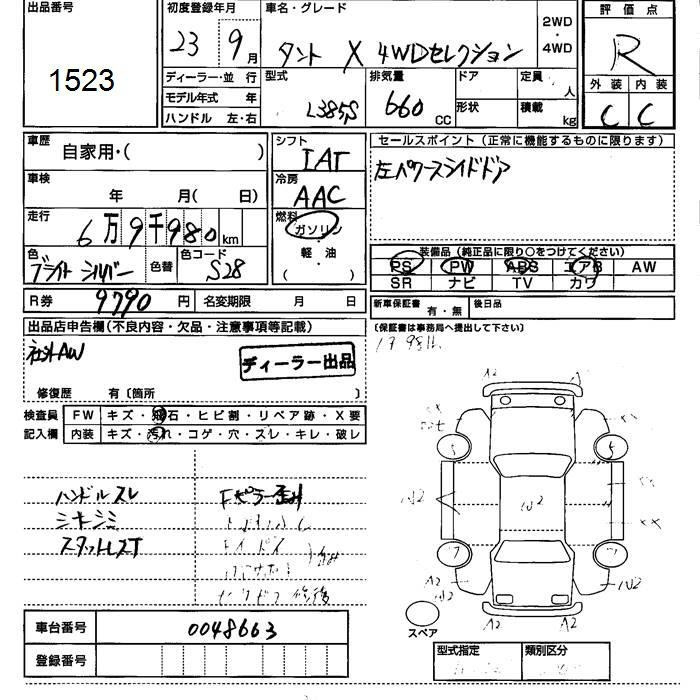 出品番号
1523
初度登録年月
23年 9月
車名・グレード
タント X 4WDセレクション
2WD・4WD
評価点
R
外装 内装
C C
ディーラー・並 行
モデル年式 年
ハンドル 左・右
型式
L385S
排気量
660 CC
ドア
形状
定員 人
積載 kg
車歴
自家用・( )
車検
年 月( 日)
走行
6万9千980km
色
ブライトシルバー
色替
色コード
S28
シフト
IAT
冷房
AAC
燃料
ガソリン
軽・油
( )
セールスポイント(正常に機能するものに限ります)
左パワースライドドア
装備品(純正品に限り○をつけてください)
PS PW ABS エアB AW
SR ナビ TV カワ
R券 9790 円
名変期限 月 日
新車保証書 有・無
後日品
(保証書は事務局へ提出して下さい)
出品店申告欄(不良内容・欠品・注意事項等記載)
社外AW
ディーラー出品
修復歴 有〔箇所 〕
検査員記入欄
FW キズ・飛石・ヒビ割・リペア跡・X要
内装 キズ・汚れ・コゲ・穴・スレ・キレ・破レ
ハンドルスレ
シートシミ
スタットレスT
Fピラー歪み
車台番号
0048663
登録番号
5 5
W2
W2
7 7
A2
W2
W2
A2 A2
スペア
型式指定
類別区分